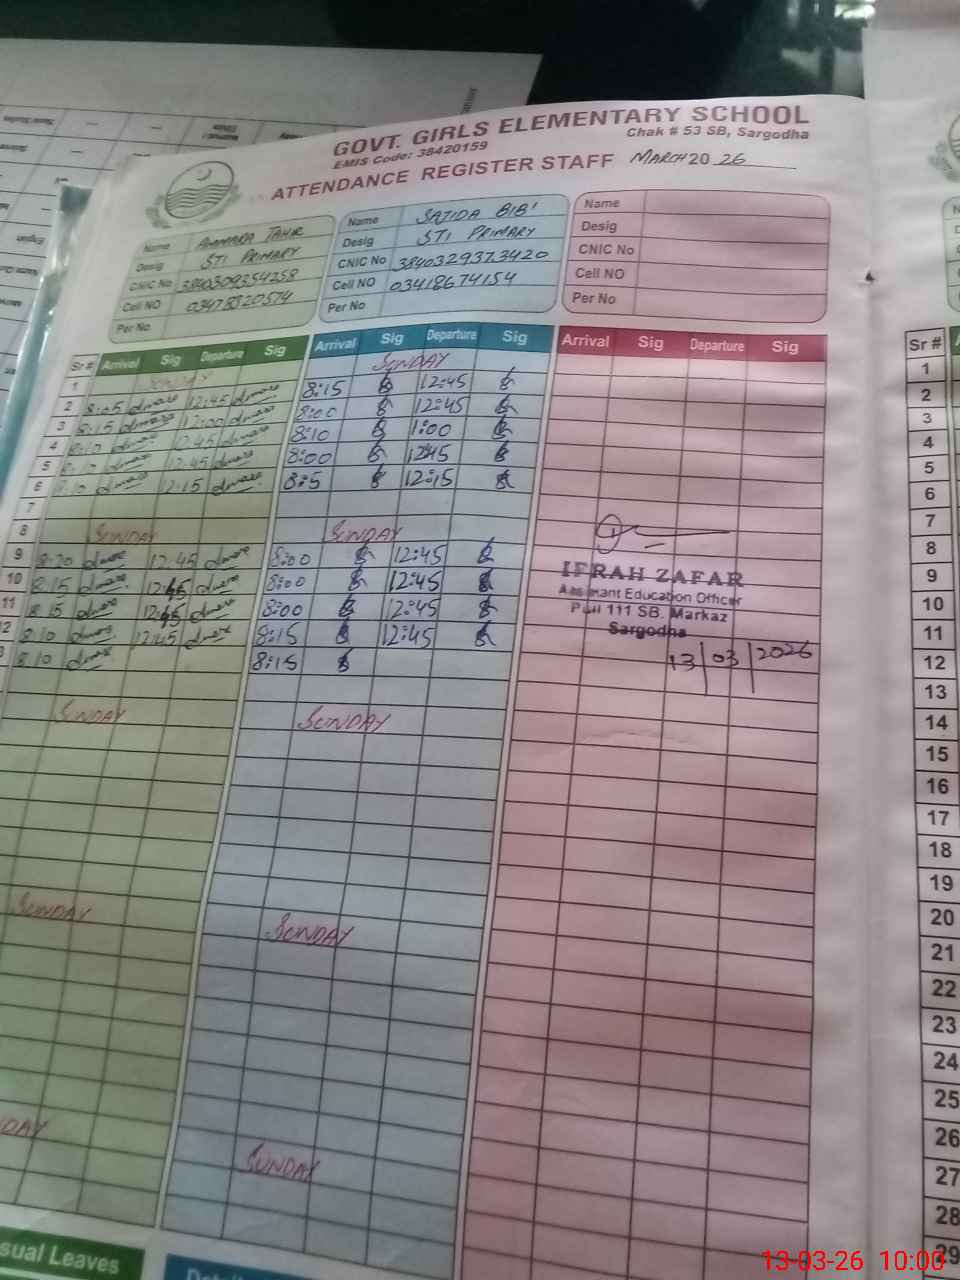 GOVT. GIRLS ELEMENTARY SCHOOL
EMIS Code: 38420159
Chak # 53 SB, Sargodha
ATTENDANCE REGISTER STAFF MARCH 20 26
Name AMMARA TAHIR
Desig STI PRIMARY
CNIC No
Cell NO 03478320574
Per No
Name SAJIDA BIBI
Desig STI PRIMARY
CNIC No 3840329373420
Cell NO 03418674154
Per No
Name
Desig
CNIC No
Cell NO
Per No
Sr # Arrival Sig Departure Sig Arrival Sig Departure Sig Arrival Sig Departure Sig
1 SUNDAY SUNDAY
2 8:05 12:45 8:15 12:45
3 8:15 12:00 8:00 12:45
4 8:10 12:45 8:10 1:00
5 8:10 12:45 8:00 12:45
6 8:10 12:15 8:5 12:15
7
8 SUNDAY SUNDAY
9 8:20 12:45 8:00 12:45
10 8:15 12:45 8:00 12:45
11 8:15 12:45 8:00 12:45
12 8:10 12:45 8:15 12:45
8:10 8:15
SUNDAY SUNDAY
SUNDAY SUNDAY
SUNDAY
IFRAH ZAFAR
Assistant Education Officer
Pull 111 SB. Markaz
Sargodha
13/03/2026
sual Leaves
Sr #
1
2
3
4
5
6
7
8
9
10
11
12
13
14
15
16
17
18
19
20
21
22
23
24
25
26
27
28
29
13-03-26 10:00